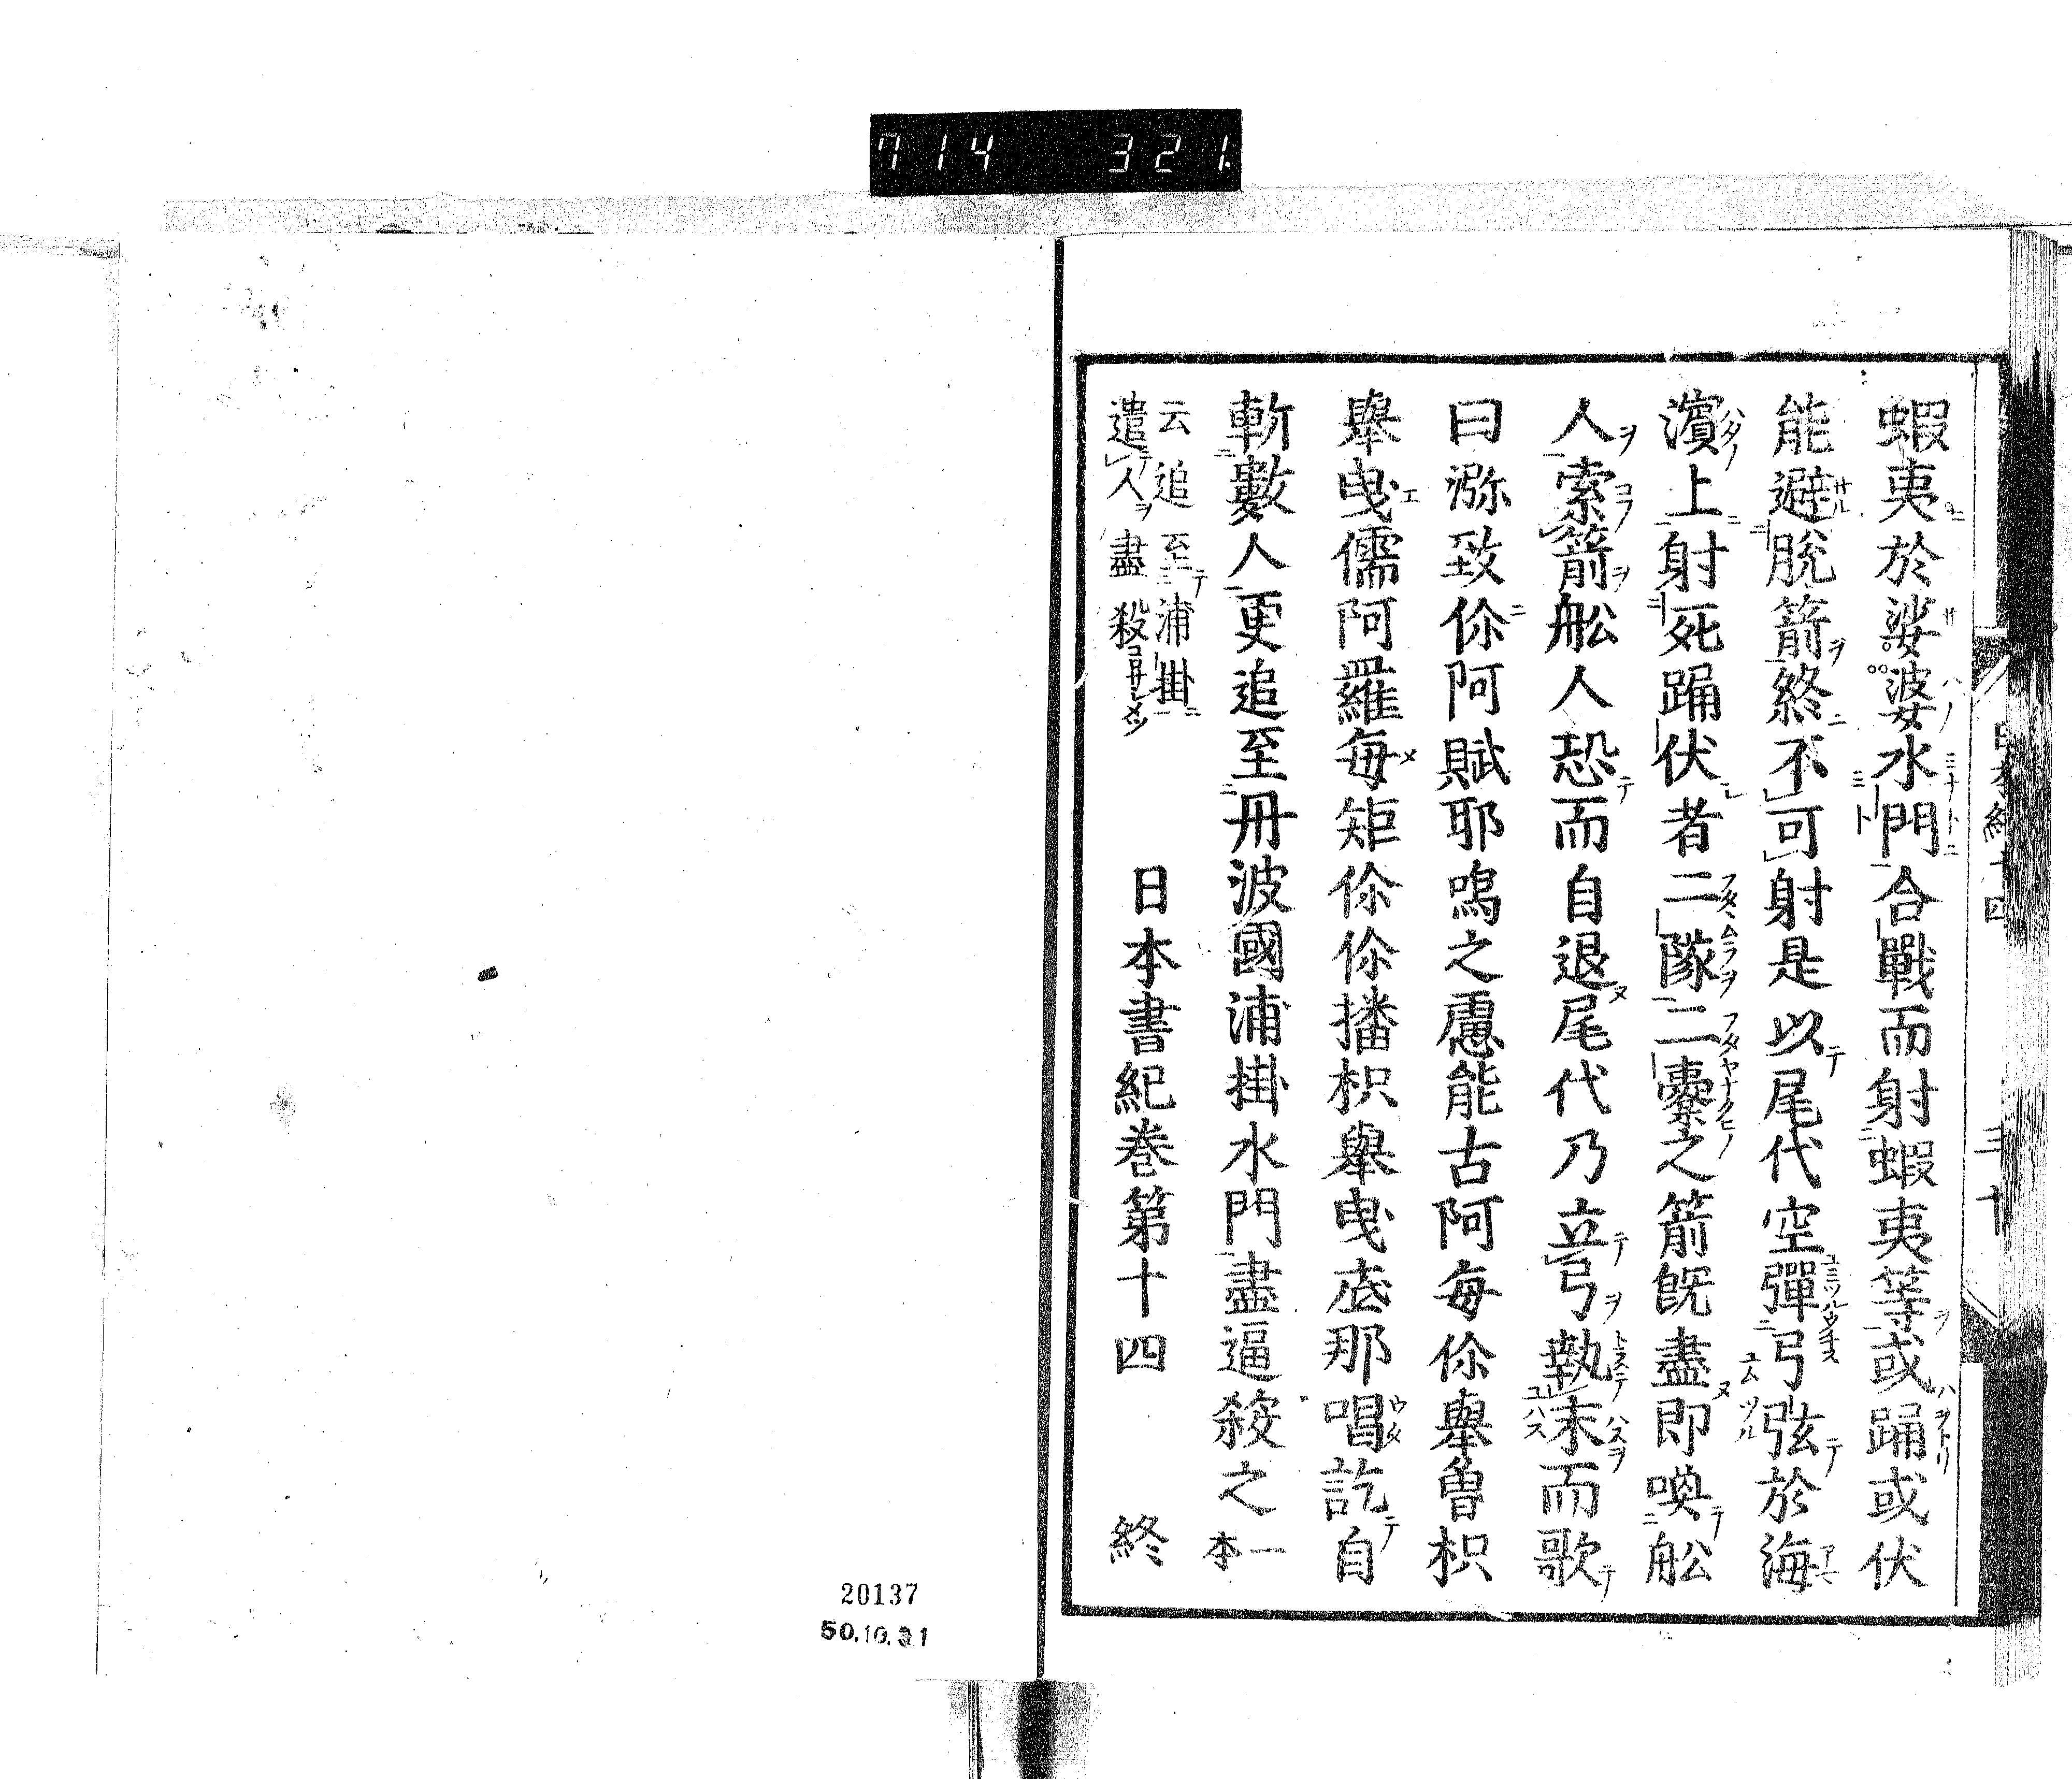 714 321
蝦夷於娑婆水門合戰而射蝦夷等或踊或伏
能避脫箭終不可射是以尾代空彈弓弦於海
濱上射死踊伏者二隊二櫜之箭既盡即喚舩
人索箭舩人恐而自退尾代乃立弓執末而歌
曰瀰致伱阿賦耶嗚之慮能古阿每伱舉曾枳
舉曳儒阿羅每矩伱伱播枳舉曳底那唱訖自
斬數人更追至丹波國浦掛水門盡逼殺之一本
云追至浦掛
遣人盡殺
日本書紀卷第十四 終
20137
50.10.31